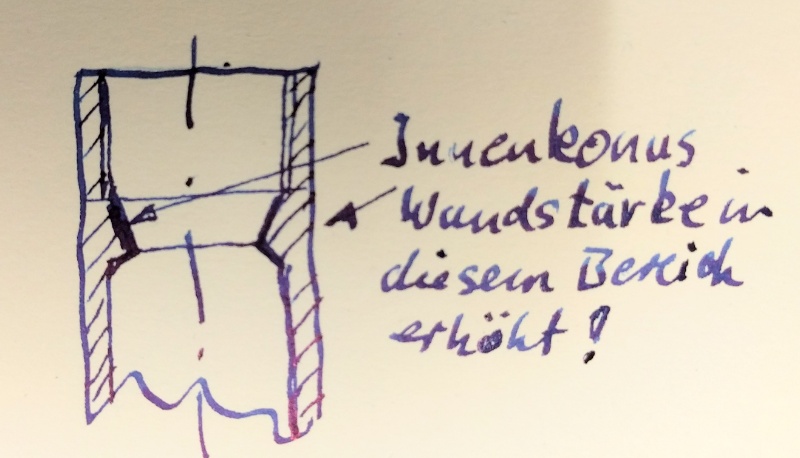 Innenkonus
Wandstärke in
diesem Bereich
erhöht!